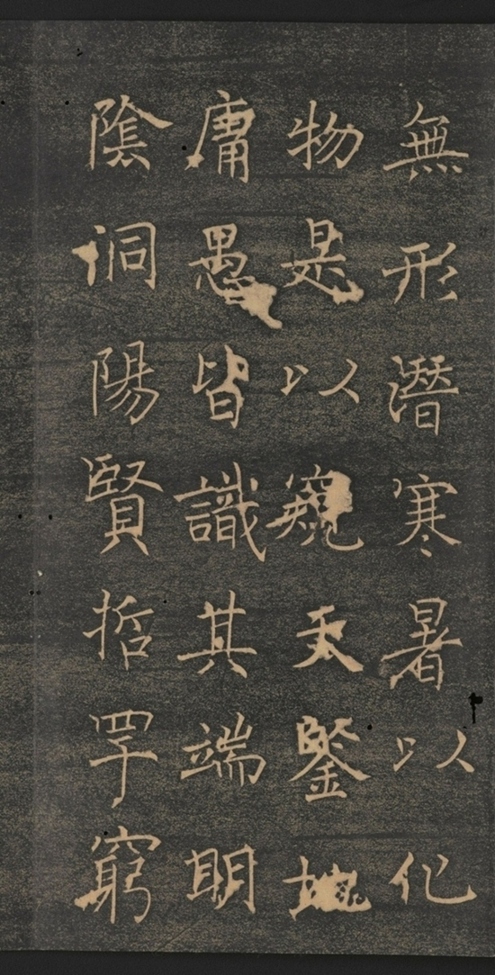 無形潛寒暑以化
物是以窺天鑒地
庸愚皆識其端明
陰洞陽賢哲罕窮